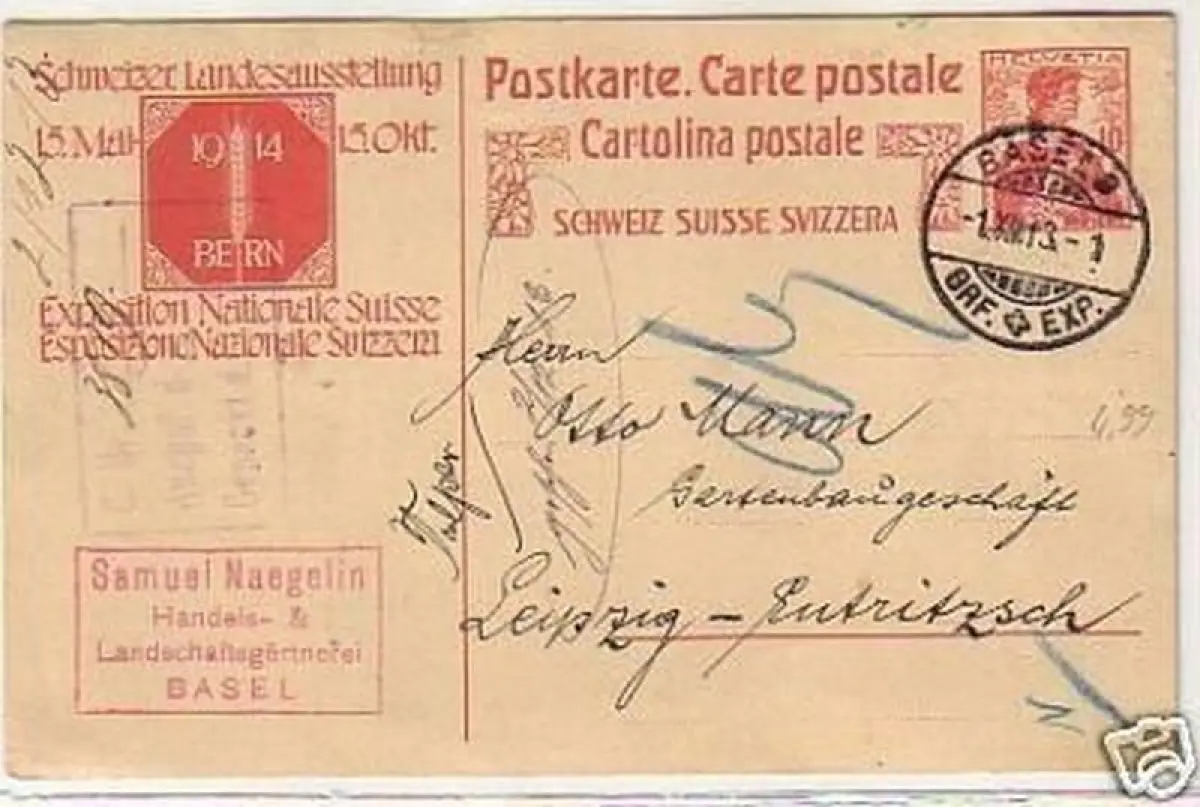 Schweizer Landesausstellung
15. Mai- 15. Okt.
1914
BERN
Exposition Nationale Suisse
Esposizione Nazionale Svizzera
Postkarte. Carte postale
Cartolina postale
SCHWEIZ SUISSE SVIZZERA
HELVETIA
10
BASEL 9
-1.XII.13.-1
BRF. EXP.
Herrn
Otto Mann
Gartenbaugeschäft
Leipzig - Eutritzsch
Samuel Naegelin
Handels- &
Landschaftsgärtnerei
BASEL
4,99